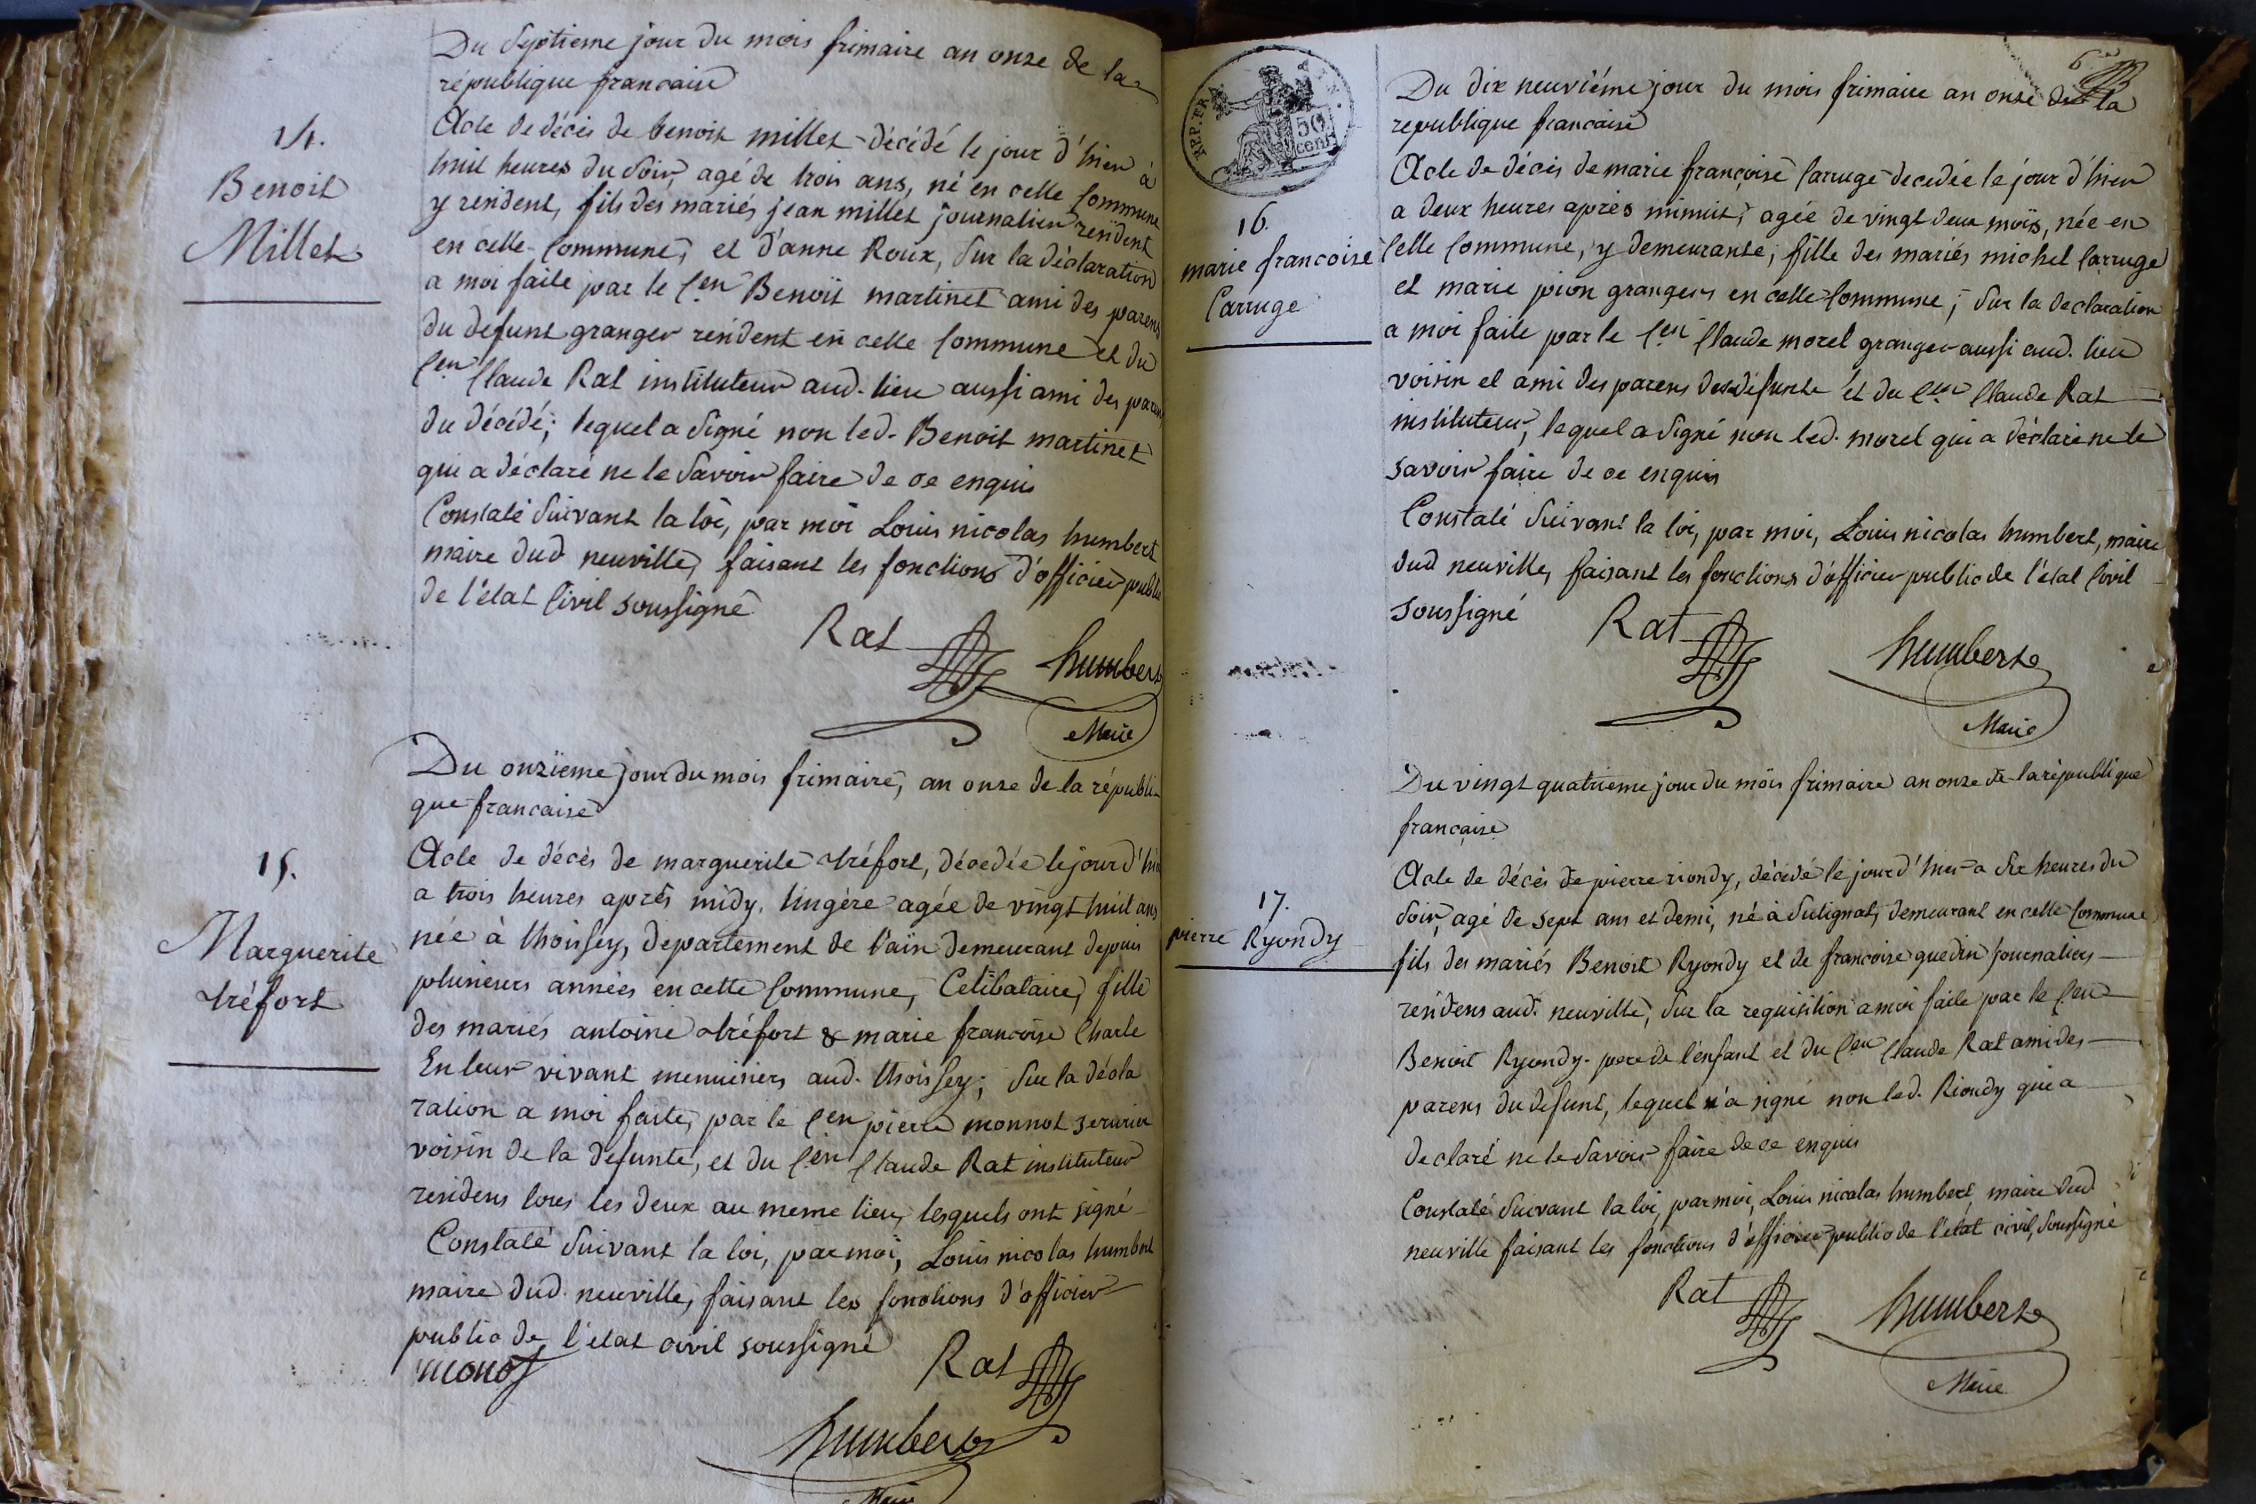 Du Septieme jour du mois frimaire an onze de la
république francaise
14.
Benoit
Millet
Acte de décès de benoit millet décédé le jour d'hier à
huit heures du Soir, agé de trois ans, né en cette Commune
y resident, fils des mariés jean millet journalier resident
en cette Commune, et d'anne Roux, Sur la déclaration
a moi faite par le Cen Benoit martinet ami des parens
du defunt granger resident en cette Commune et du
Cen Claude Rat instituteur aud. lieu aussi ami des parens
du décédé; lequel a Signé non led. Benoit martinet
qui a déclaré ne le Savoir faire de ce enquis
Constaté Suivant la loi, par moi Louis nicolas humbert
maire dud neuville, faisant les fonctions d'officier public
de l'état Civil soussigné
Rat
humbert
Maire
Du onzieme jour du mois frimaire, an onze de la républi-
que francaise
15.
Marguerite
tréfort
Acte de décès de marguerite tréfort, décedée le jour d'hier
a trois heures après midy, lingère agée de vingt huit ans
née à thoissey, departement de l'ain demeurant depuis
plusieurs années en cette Commune, Celibataire, fille
des mariés antoine tréfort & marie francoise Charle
En leur vivant menuisiers aud. thoissey; Sur la décla
ration a moi faite, par le Cen pierre monnot serurier
voisin de la defunte, et du Cen Claude Rat instituteur
residens tous les deux au meme lieu, lesquels ont signé
Constaté Suivant la loi, par moi, Louis nicolas humbert
maire dud. neuville, faisant les fonctions d'officier
public de l'état civil soussigné
monot
Rat
humbert
Maire
REP. FRA.
50
cent
6
Du dix neuviéme jour du mois frimaire an onze de la
republique francaise
16.
marie francoise
Carruge
Acte de décès de marie françoise Carruge decedée le jour d'hier
a deux heures après minuit, agée de vingt deux mois, née en
Cette Commune, y demeurante, fille des mariés michel Carruge
et marie pion grangers en cette Commune; Sur la declaration
a moi faite par le Cen Claude morel granger aussi aud. lieu
voisin et ami des parens de la defunte et du Cen Claude Rat
instituteur, lequel a signé non led. morel qui a déclaré ne le
savoir faire de ce enquis
Constaté Suivant la loi, par moi, Louis nicolas humbert, maire
dud neuville, faisant les fonctions d'officier public de l'état Civil
soussigné
Rat
humbert
Maire
Du vingt quatrieme jour du mois frimaire an onze de la république
française
17.
pierre Ryondy
Acte de décès de pierre riondy, décédé le jour d'hier a Six heures du
Soir, agé de sept ans et demi, né à Sulignat, demeurant en cette Commune
fils des mariés Benoit Ryondy et de francoise guedin journaliers
residens aud. neuville, Sur la requisition a moi faite par le Cen
Benoit Ryondy pere de l'enfant et du Cen Claude Rat ami des
parens du defunt, lequel a signé non led. Riondy qui a
declaré ne le Savoir faire de ce enquis
Constaté Suivant la loi, par moi, Louis nicolas humbert maire dud
neuville faisant les fonctions d'officier public de l'état civil, Soussigné
Rat
humbert
Maire